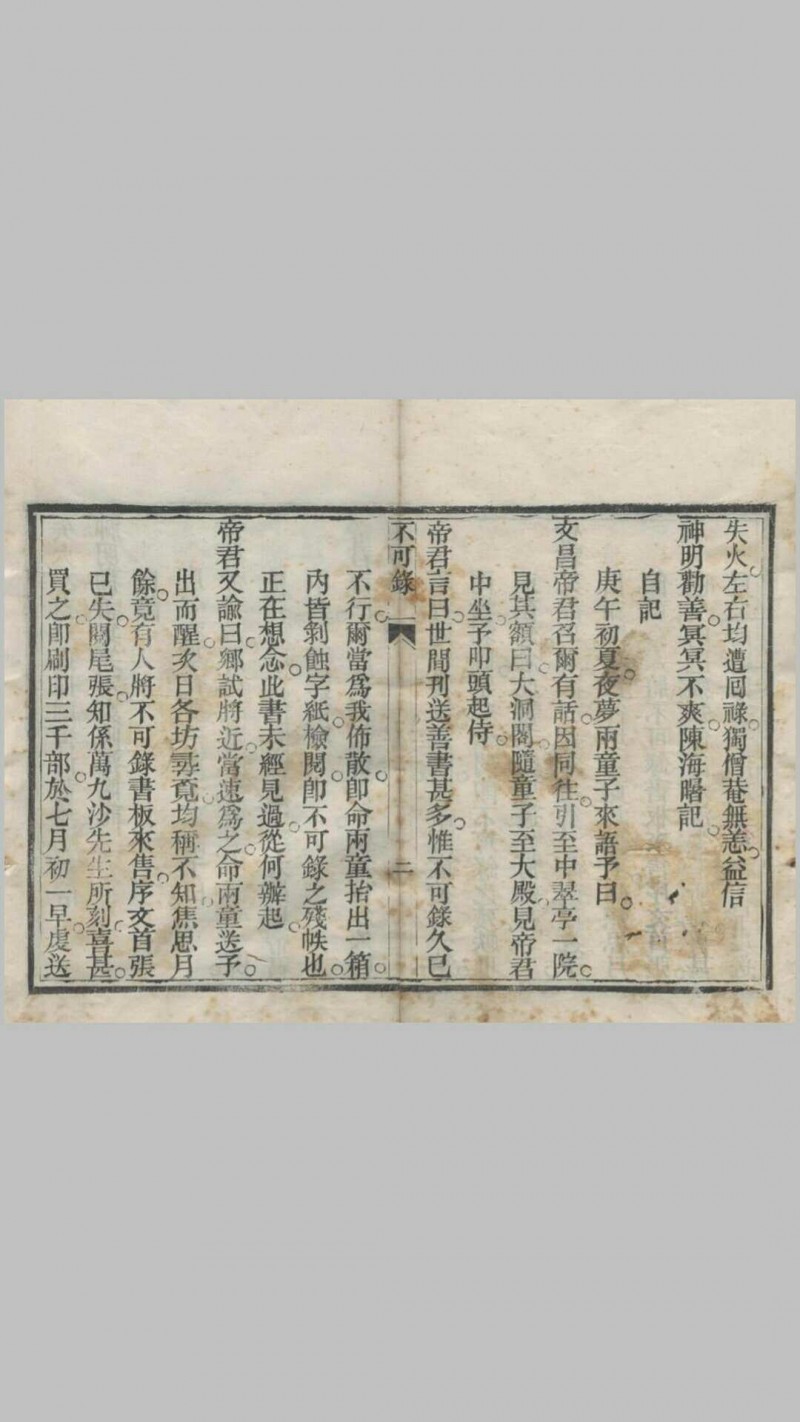 失火左右均遭回祿獨僧菴無恙益信
神明勸善冥冥不爽陳海曙記
自記
庚午初夏夜夢兩童子來語予曰
文昌帝君召爾有話因同往引至中翠亭一院
見其額曰大洞閣隨童子至大殿見帝君
中坐予叩頭起侍
帝君言曰世間刊送善書甚多惟不可錄久已
不可錄 二
不行爾當爲我佈散卽命兩童抬出一箱
內皆剝蝕字紙檢閱卽不可錄之殘帙也
正在想念此書未經見過從何辦起
帝君又諭曰鄉試將近當速爲之命兩童送予
出而醒次日各坊尋覓均稱不知焦思月
餘竟有人將不可錄書板來售序文首張
已失閱尾張知係萬九沙先生所刻喜甚
買之卽刷印三千部於七月初一早虔送